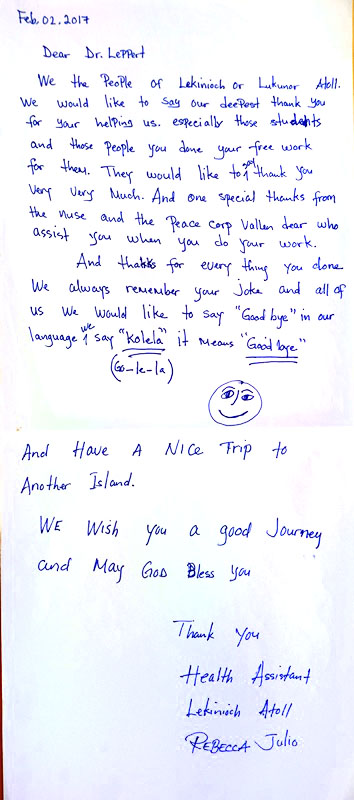 Feb, 02. 2017
Dear Dr. Leppert
We the People of Lekinioch or Lukunor Atoll.
We would like to say our deepest thank you
for your helping us. especially those students
and those people you done your free work
for them. They would like to say thank you
very very Much. And one special thanks from
the nuse and the Peace corp Vallen dear who
assist you when you do your work.
And thanks for every thing you done
We always remember your Joke and all of
us We would like to say "Good bye" in our
language we say "Kolela" it Means "Good bye"
(Go-le-la)
And Have A Nice Trip to
Another Island.
WE Wish you a good Journey
and May GOD Bless you
Thank you
Health Assistant
Lekinioch Atoll
REBECCA Julio